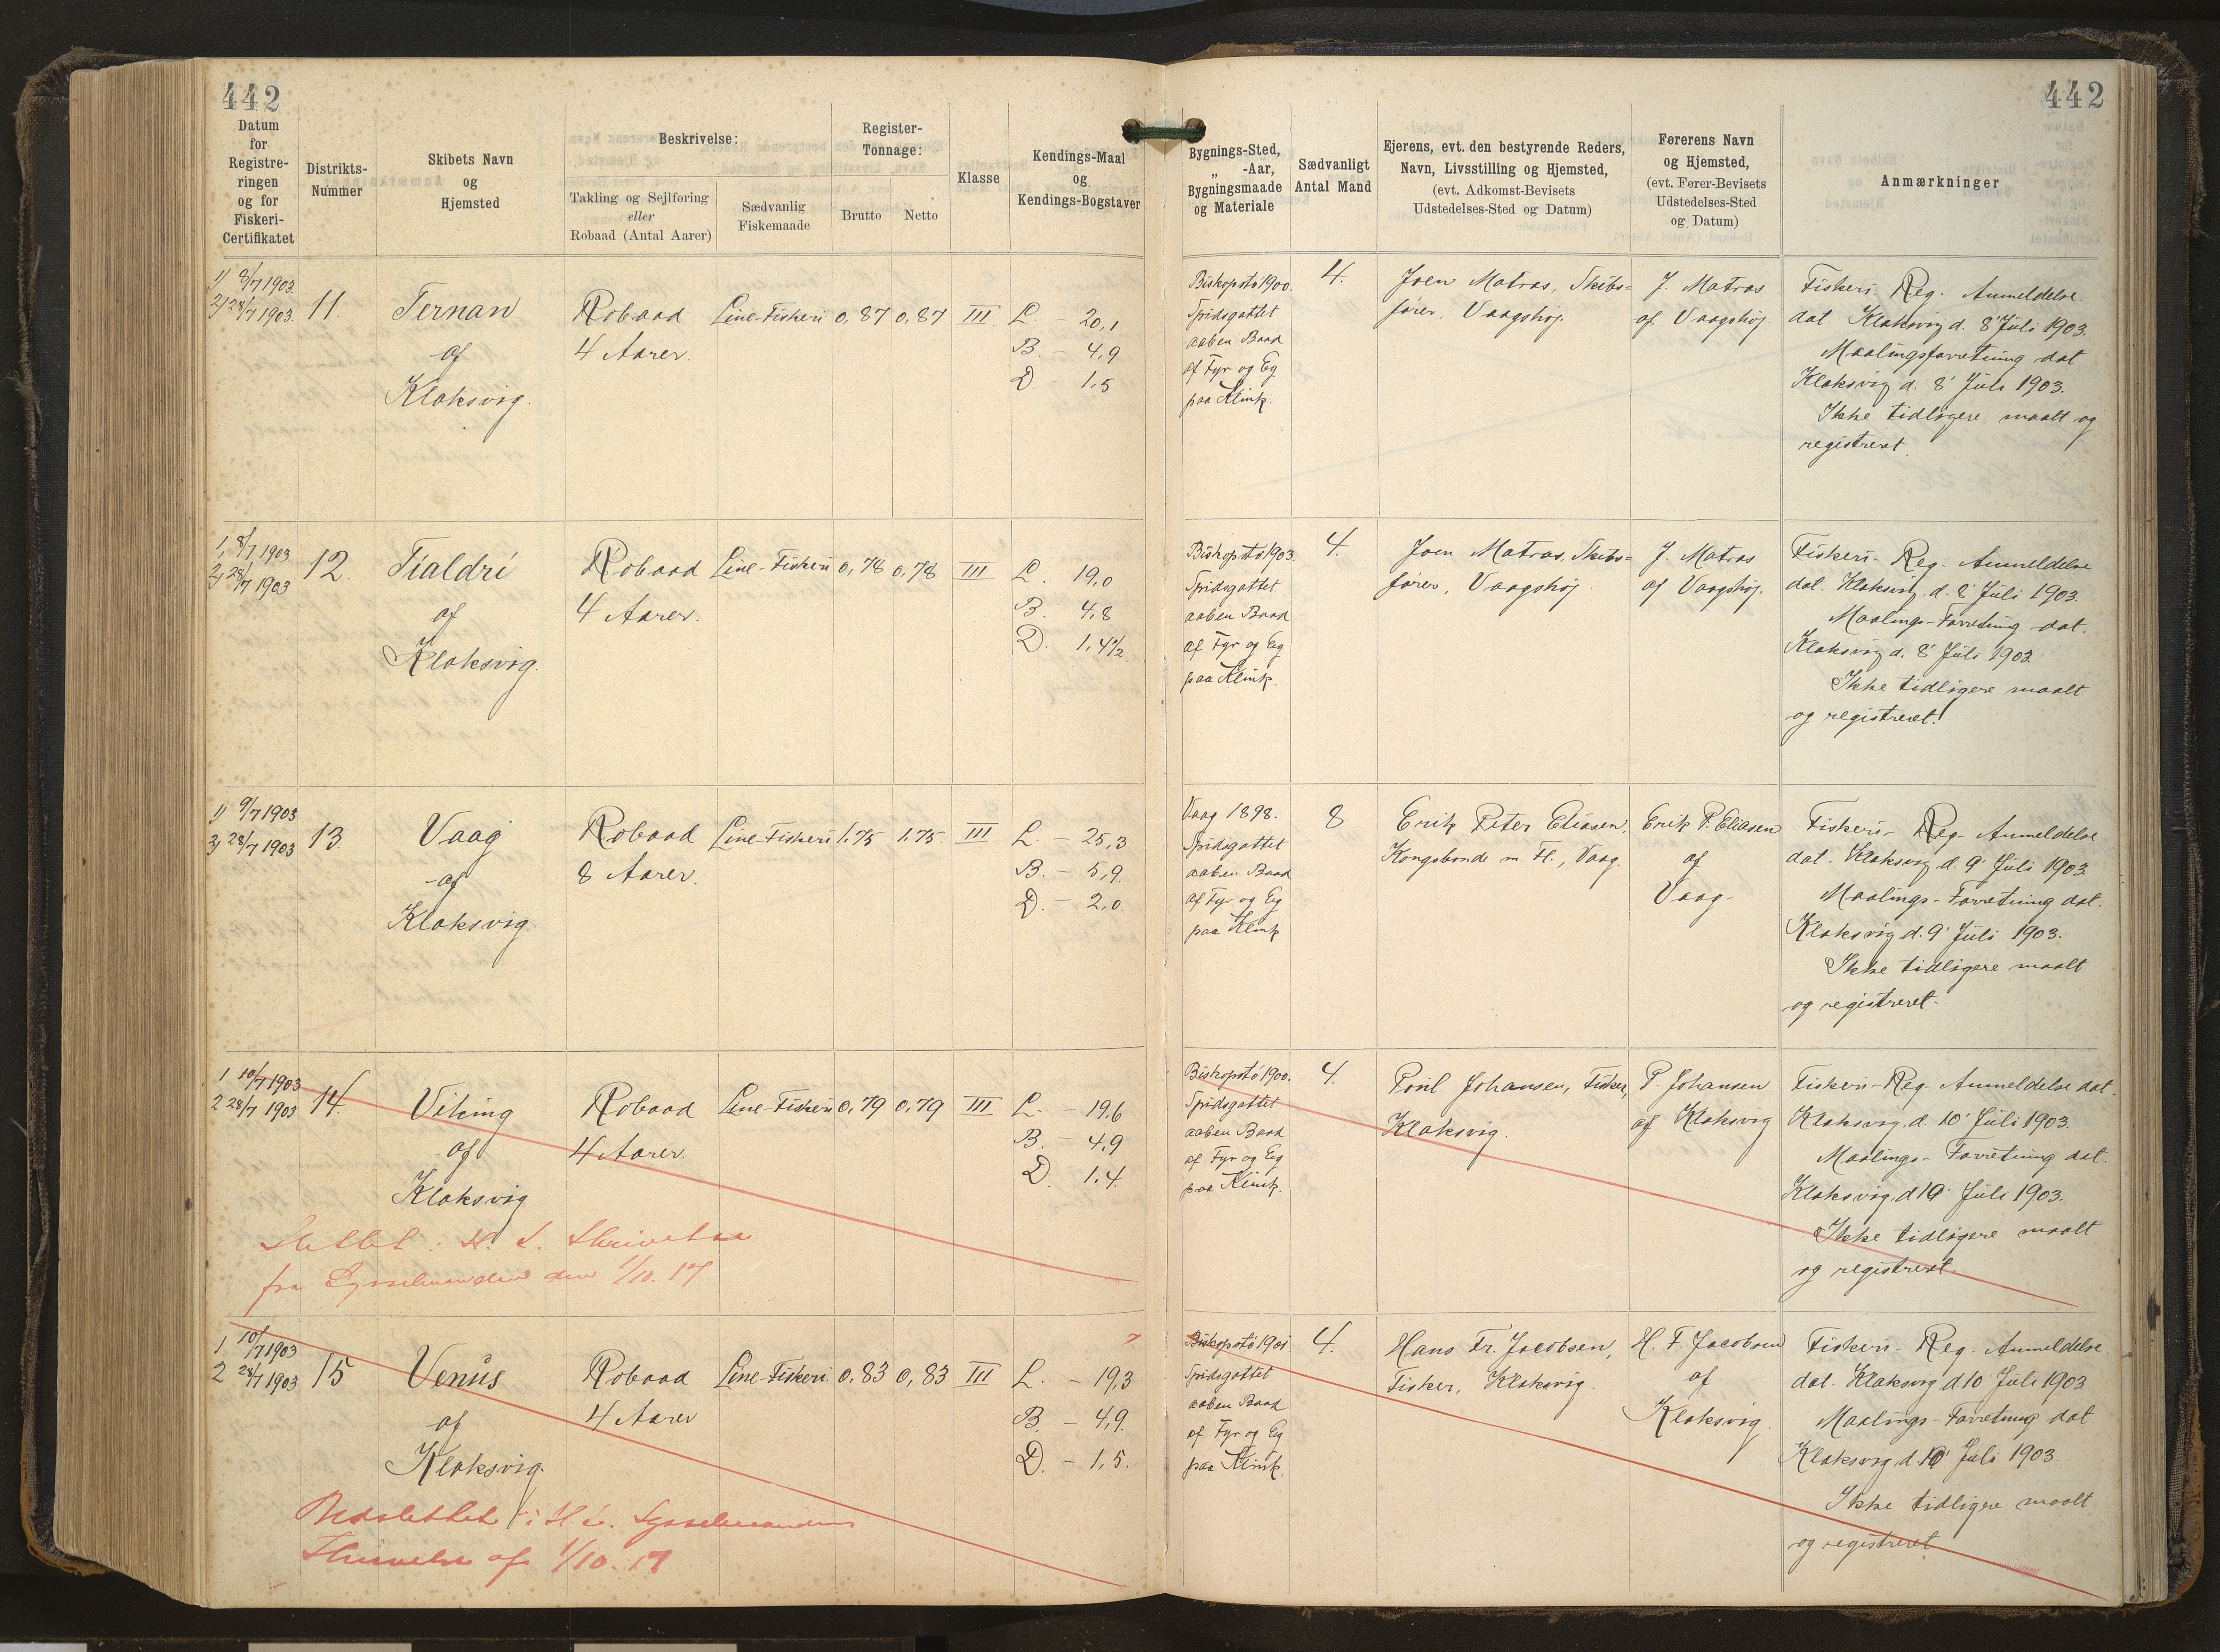 442
442
Datum
for
Registre-
ringen
og for
Fiskeri-
Certifikatet
Distrikts-
Nummer
Skibets Navn
og
Hjemsted
Beskrivelse:
Takling og Sejlføring
eller
Robaad (Antal Aarer)
Sædvanlig
Fiskemaade
Register-
Tonnage:
Brutto
Netto
Klasse
Kendings-Maal
og
Kendings-Bogstaver
Bygnings-Sted,
„ -Aar,
Bygningsmaade
og Materiale
Sædvanligt
Antal Mand
Ejerens, evt. den bestyrende Reders,
Navn, Livsstilling og Hjemsted,
(evt. Adkomst-Bevisets
Udstedelses-Sted og Datum)
Førerens Navn
og Hjemsted,
(evt. Fører-Bevisets
Udstedelses-Sted
og Datum)
Anmærkninger
1) 8/7 1903.
2) 28/7 1903.
11.
Ternan
af
Klaksvig.
Robaad
4 Aarer.
Line-Fiskeri
0,87
0,87
III
L. - 20,1
B. - 4,9
D - 1,5
Biskopstö 1900.
Spidsgattet
aaben Baad
af Fyr og Eg
paa Klink.
4.
Joen Matras, Skibs-
fører, Vaagshøj.
J. Matras
af Vaagshøj.
Fiskeri Reg. Anmeldelse
dat. Klaksvig d. 8' Juli 1903.
Maalingsforretning dat
Klaksvig d. 8' Juli 1903.
Ikke tidligere maalt og
registreret.
1, 8/7 1903
2, 28/7 1903
12.
Tialdri
af
Klaksvig.
Robaad
4 Aarer.
Line-Fiskeri
0,78
0,78
III
L. 19,0
B. 4,8
D. 1,4 1/2
Biskopstö 1903.
Spidsgattet
aaben Baad
af Fyr og Eg
paa Klink.
4.
Joen Matras, Skibs-
fører, Vaagshøj
J. Matras
af Vaagshøj.
Fiskeri- Reg. Anmeldelse
dat. Klaksvig. d. 8' Juli 1903.
Maalings-Forretning dat.
Klaksvig d. 8' Juli 1903.
Ikke tidligere maalt
og registreret.
1) 9/7 1903
2) 28/7 1903
13.
Vaag
af
Klaksvig.
Robaad
8 Aarer.
Line-Fiskeri
1.75
1.75.
III
L. - 25,3
B. - 5,9.
D. - 2,0
Vaag 1898.
Spidsgattet
aaben Baad
af Fyr og Eg
paa Klink
8
Erik Peter Eliasen,
Kongsbonde m. Fl., Vaag.
Erik P. Eliasen
af
Vaag.
Fiskeri- Reg- Anmeldelse
dat. Klaksvig d. 9' Juli 1903
Maalings-Forretning dat.
Klaksvig d. 9' Juli 1903.
Ikke tidligere maalt
og registreret.
1 10/7 1903
2 28/7 1903
14.
Viking
af
Klaksvig
Robaad
4 Aarer.
Line-Fiskeri
0,79
0,79
III
L. - 19,6
B. - 4,9
D. 1,4.
Biskopstö 1900.
Spidsgattet
aaben Baad
af Fyr og Eg
paa Klink.
4.
Poul Johansen, Fisker,
Klaksvig.
P. Johansen
af Klaksvig
Fiskeri-Reg- Anmeldelse dat.
Klaksvig, d. 10' Juli 1903.
Maalings- Forretning dat.
Klaksvig, d. 10' Juli 1903.
Ikke tidligere maalt
og registreret.
Slettet i H. t. Skrivelse
fra Sysselmanden den 1/10. 17
1 10/7 1903
2 28/7 1903
15
Venus
af
Klaksvig.
Robaad
4 Aarer
Line-Fiskeri.
0,83
0,83
III
L. - 19,3
B. - 4,9.
D. - 1,5.
Biskopstö 1901
Spidsgattet
aaben Baad
af Fyr og Eg
paa Klink.
4.
Hans Fr. Jacobsen,
Fisker, Klaksvig.
H. F. Jacobsen
af
Klaksvig.
Fiskeri- Reg- Anmeldelse
dat. Klaksvig d. 10' Juli 1903
Maalings-Forretning dat
Klaksvig, d. 10' Juli 1903.
Ikke tidligere maalt
og registreret
i H. t. Sysselmandens
Skrivelse af 1/10. 17